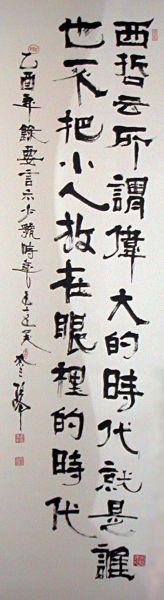 西哲云所謂偉大的時代就是誰
也不把小人放在眼裡的時代
乙酉年錄要言示少號時年